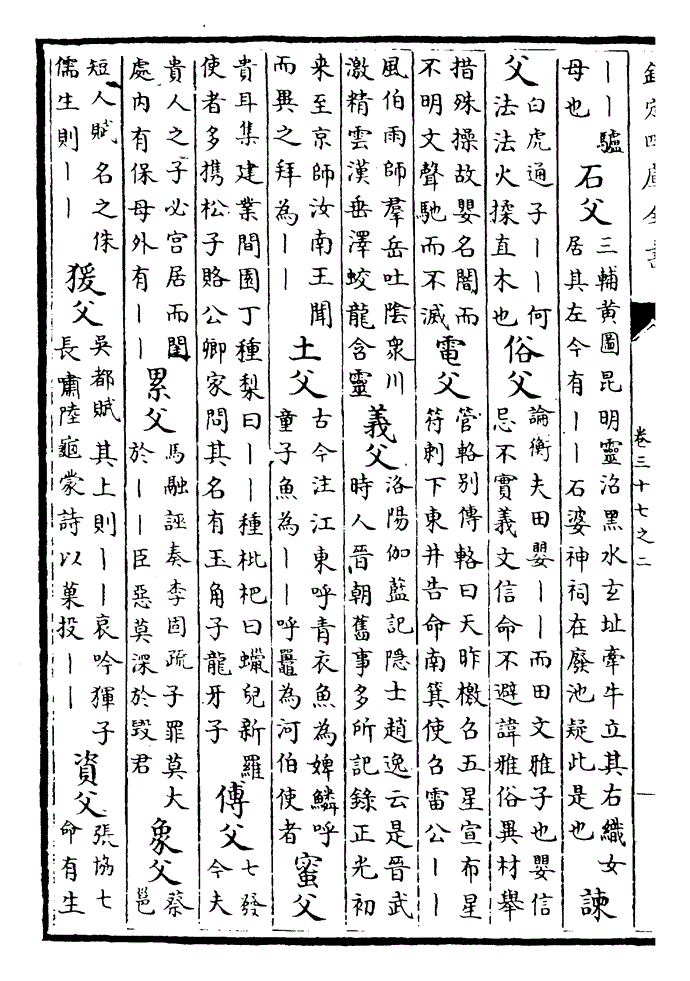 欽定四庫全書
卷三十七之二
――驢母也石父三輔黃圖昆明靈沼黑水玄址牽牛立其右織女居其左今有――石婆神祠在廢池疑此是也諫
父白虎通子――何法法火揉直木也俗父論衡夫田嬰――而田文雅子也嬰信忌不實義文信命不避諱雅俗異材舉
措殊操故嬰名闇而不明文聲馳而不滅電父管輅別傳輅曰天昨檄召五星宣布星符刺下東井告命南箕使召雷公――
風伯雨師羣岳吐陰衆川激精雲漢垂澤蛟龍含靈義父洛陽伽藍記隱士趙逸云是晉武時人晉朝舊事多所記錄正光初
来至京師汝南王聞而異之拜為――土父古今注江東呼青衣魚為婢鱗呼童子魚為――呼鼉為河伯使者蜜父
貴耳集建業間園丁種梨曰――種枇杷曰蠟兒新羅使者多携松子賂公卿家問其名有玉角子龍牙子傅父七發今夫
貴人之子必宮居而閨處內有保母外有――累父馬融誣奏李固疏子罪莫大於――臣惡莫深於毀君象父蔡邕
短人賦名之侏儒生則――猨父吳都賦其上則――哀吟獋子長嘯陸龜蒙詩以菓投――資父張協七命有生